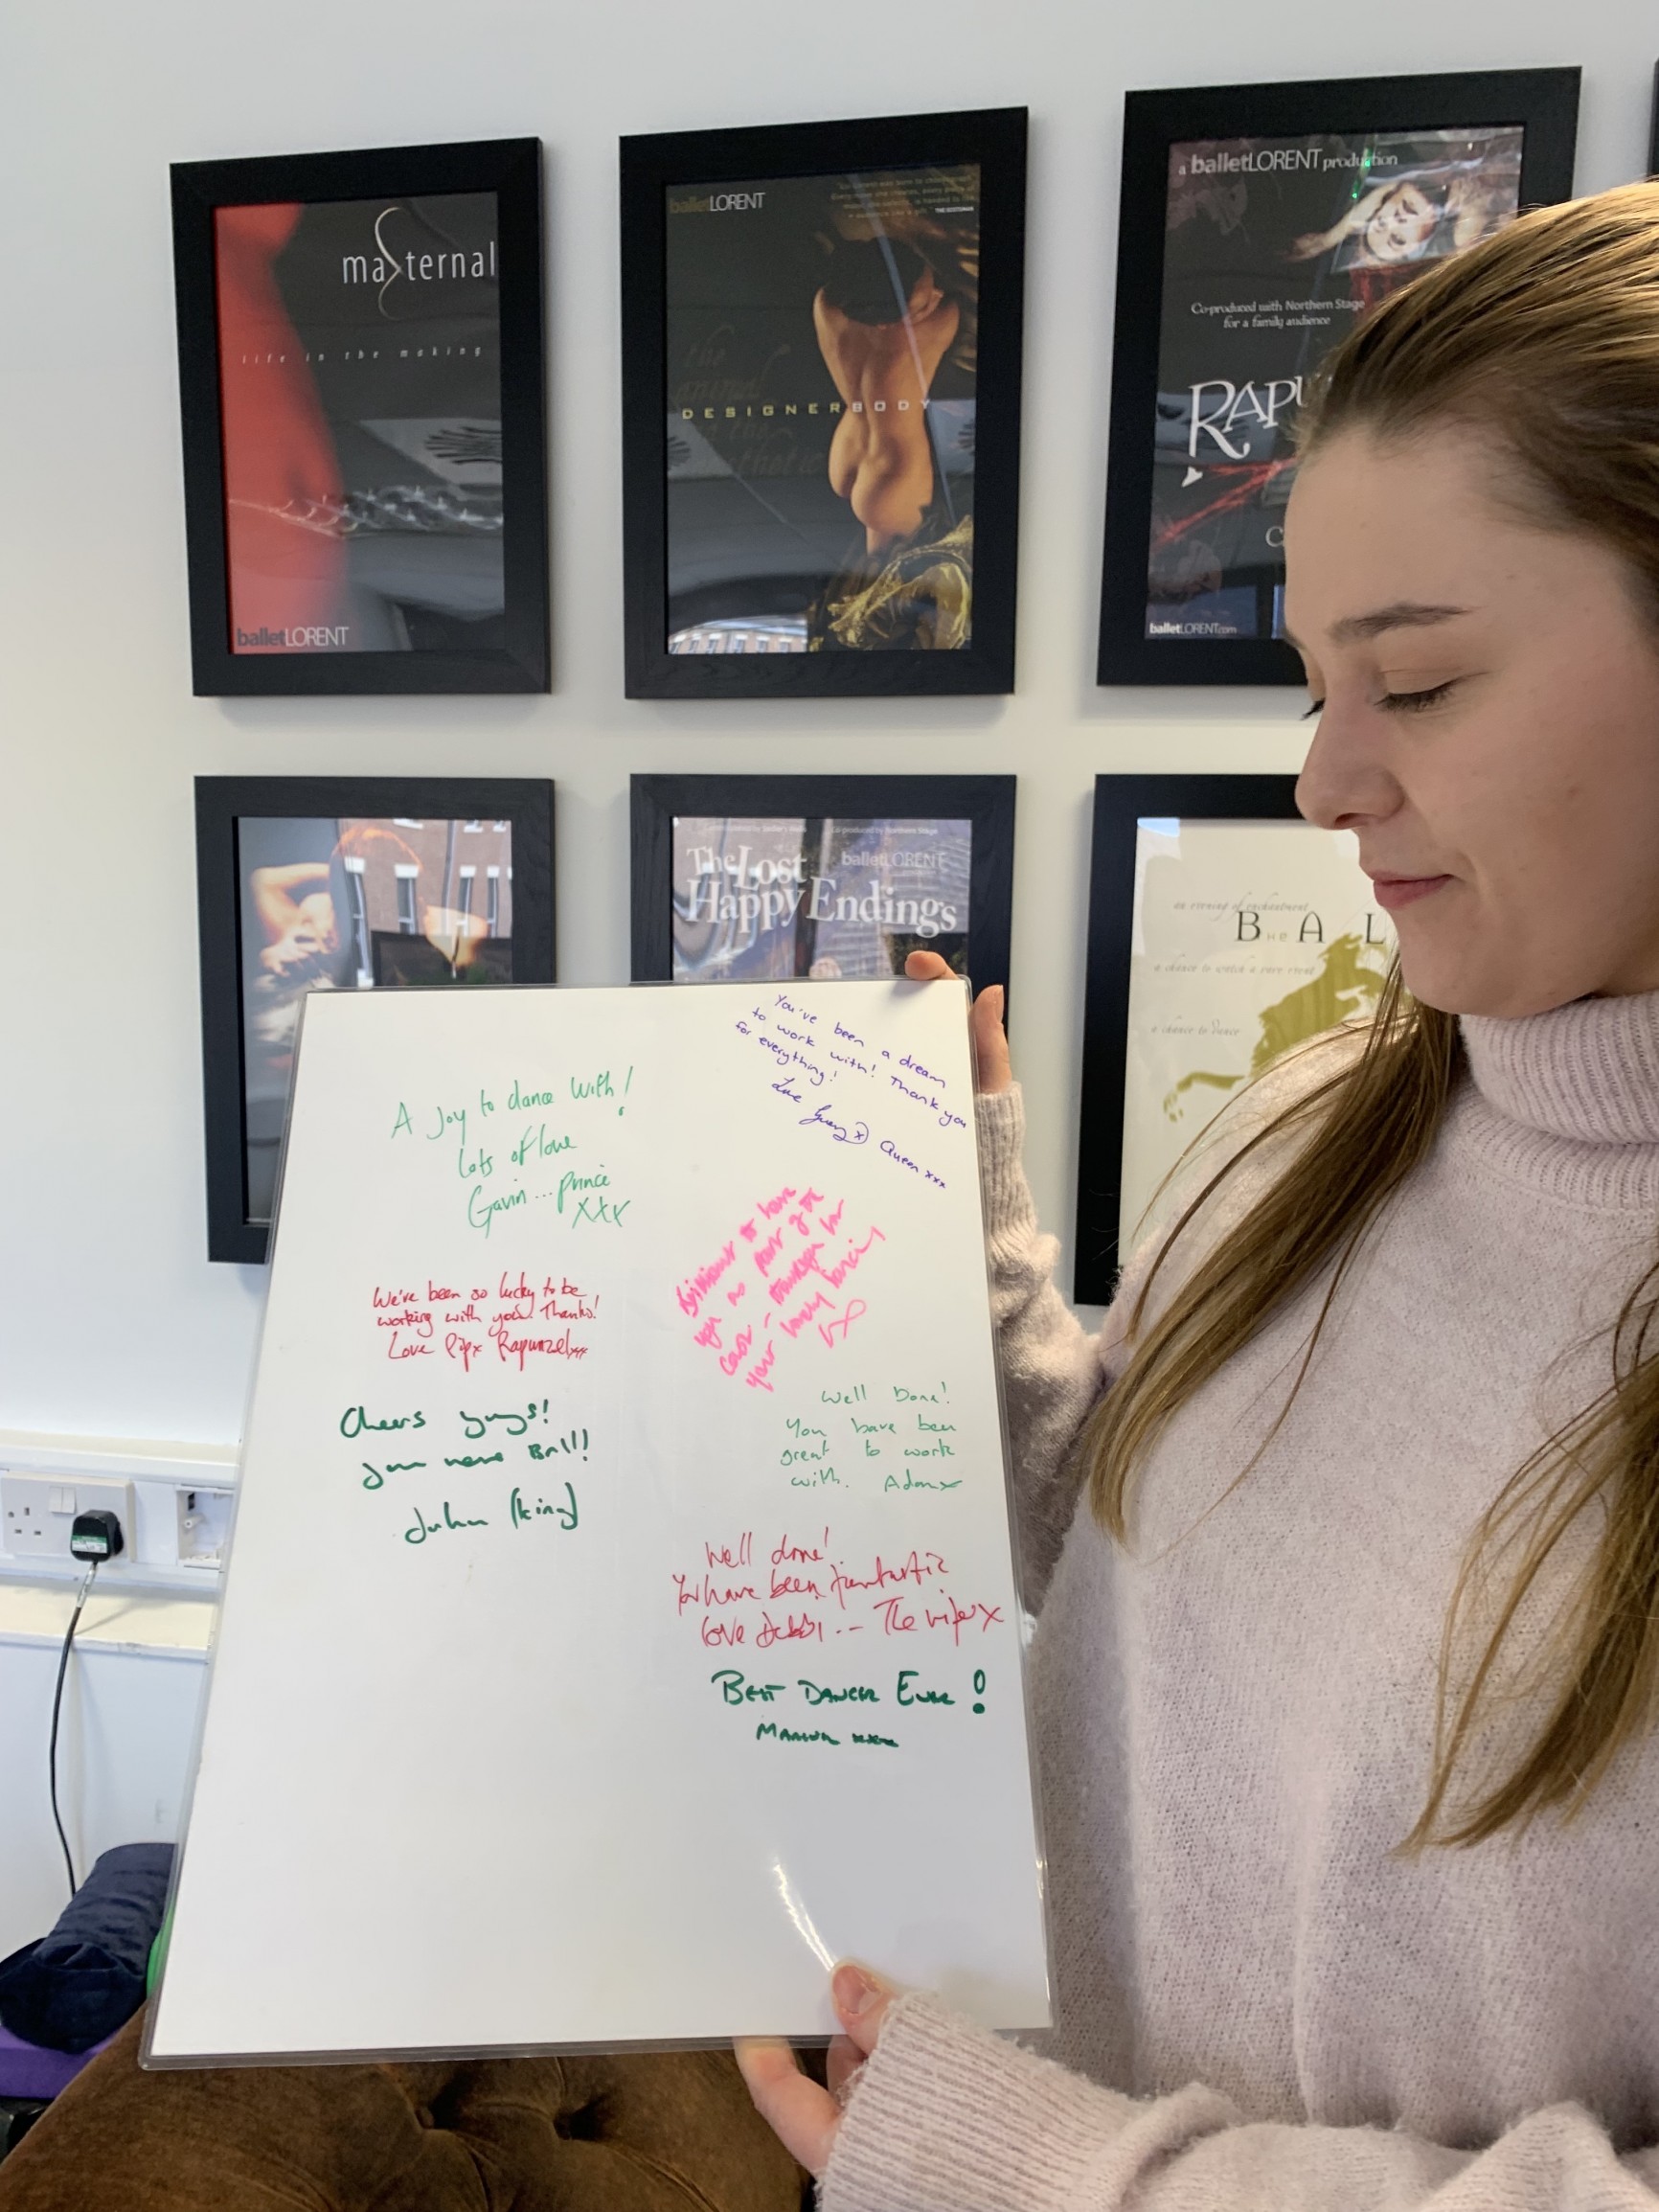 ma ternal
life in the making
balletLORENT
balletLORENT
THE SCOTSMAN
the
animal
DESIGNERBODY
in the
aesthetic
a balletLORENT production
Co-produced with Northern Stage
for a family audience
RAPU
balletLORENT.com
Co-produced by Northern Stage
The Lost
balletLORENT
Happy Endings
an evening of enchantment
a chance to watch a rare event
a chance to dance
You've been a dream
to work with! Thank you
for everything!
Love Queen xxx
A Joy to dance with!
Lots of love
Gavin... prince
xxx
Brilliant to have
you as part of the
cast - thankyou for
your lovely dancing
We've been so lucky to be
working with you. Thanks!
Love Pip x Rapunzel xxx
Cheers guys!
you were Brill!
John (king)
Well Done!
You have been
great to work
with. Adam x
Well done!
You have been fantastic
love Debbi... The wife x
BEST DANCER EVER!
xxx